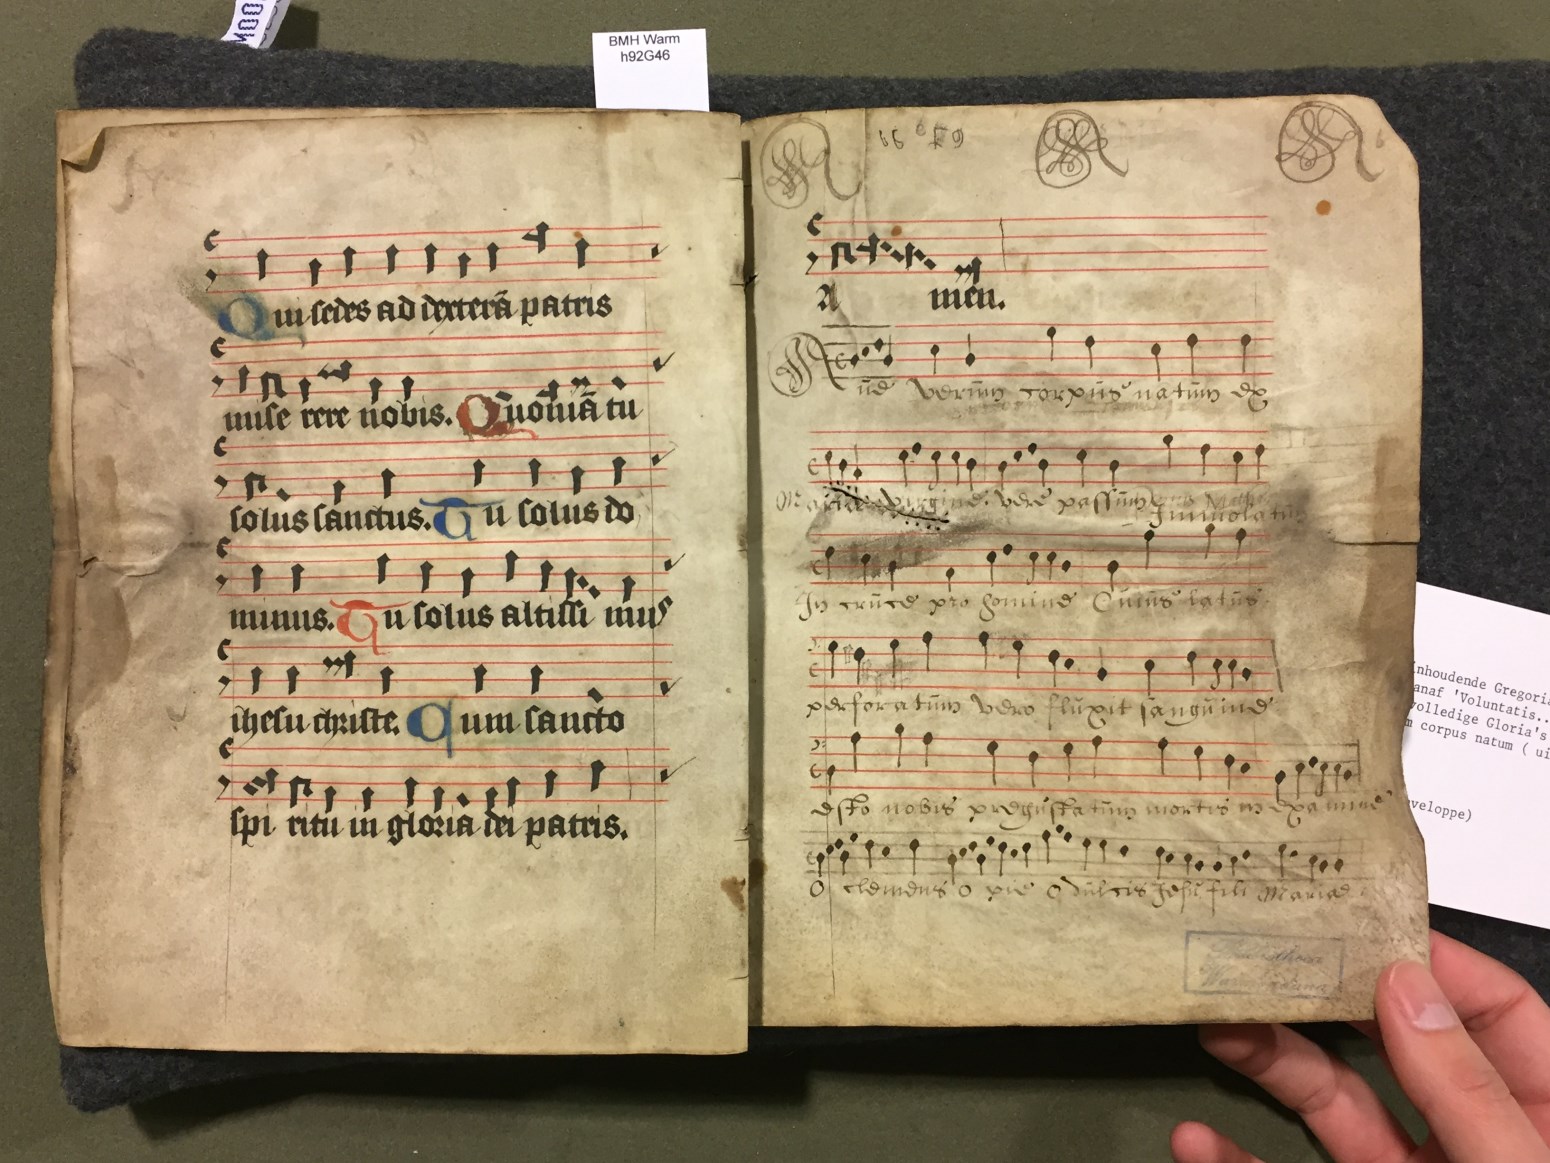 BMH Warm
h92G46
Qui sedes ad dexterā patris
mise rere nobis. Quoniā tu
solus sanctus. Tu solus do
minus. Tu solus altissi mus
ihesu christe. Cum sancto
spi ritu in gloria dei patris.
A men.
Aue verum corpus natum ex
Mariae virgine: vere passum
Immolatum
In cruce pro homine Cuius latus
perforatum vero fluxit sanguine
esto nobis pregustatum mortis in examine
O clemens O pie O dulcis Jesu fili Mariae
Inhoudende Gregoria
anaf 'Voluntatis..
volledige Gloria's
m corpus natum ( ui
veloppe)